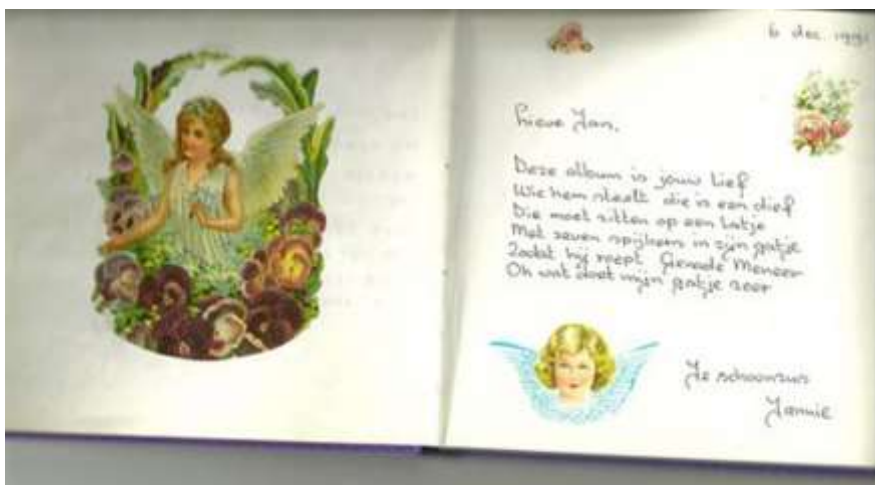 6 dec 1991
Lieve Jan,
Deze album is jouw lief
Wie hem steelt die is een dief
Die moet zitten op een latje
Met zeven spijkers in zijn gatje
Zodat hij roept Genade Meneer
Oh wat doet mijn gatje zeer
Je schoonzus
Jannie